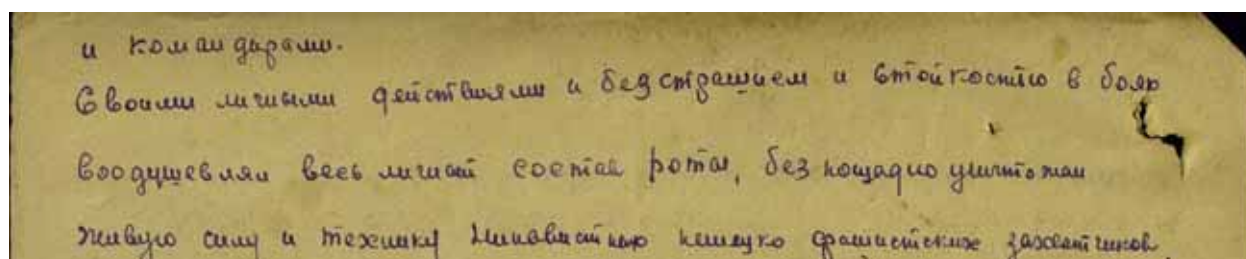 и командирами.
Своими личными действиями и безстрашием и стойкостью в боях
воодушевлял весь личный состав роты, без пощадно уничтожал
живую силу и технику немецко фашистских захватчиков.